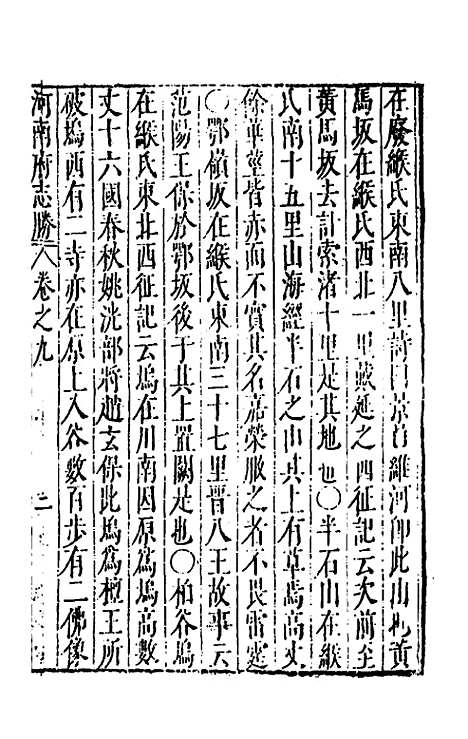 在廢緱氏東南八里詩曰景音維河卽此山也黃
馬坂在緱氏西北一里戴延之西征記云次前至
黃馬坂去計索渚十里是其地也〇半石山在緱
氏南十五里山海經半石之山其上有草焉高丈
餘華莖皆赤而不實其名嘉榮服之者不畏雷霆
〇鄂嶺坂在緱氏東南三十七里晉八王故事云
范陽王保於鄂坂後于其上置關是也〇柏谷塢
在緱氏東北西征記云塢在川南因原爲塢高數
丈十六國春秋姚洸部將趙玄保此塢爲檀王所
破塢西有二寺亦在原上入谷數百步有二佛像
河南府志勝 卷之九 二